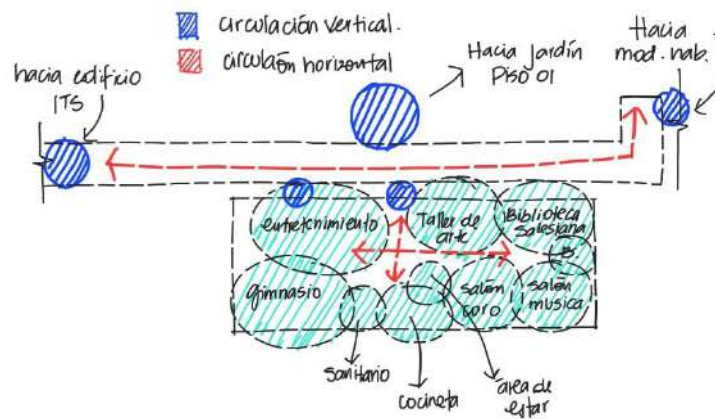 circulación vertical.
circulación horizontal
Hacia Jardín
Piso 01
Hacia
mod. hab.
hacia edificio
ITS
entretenimiento
Taller de
arte
Biblioteca
Salesiana
B
gimnasio
salón
coro
salón
musica
sanitario
cocineta
área de
estar